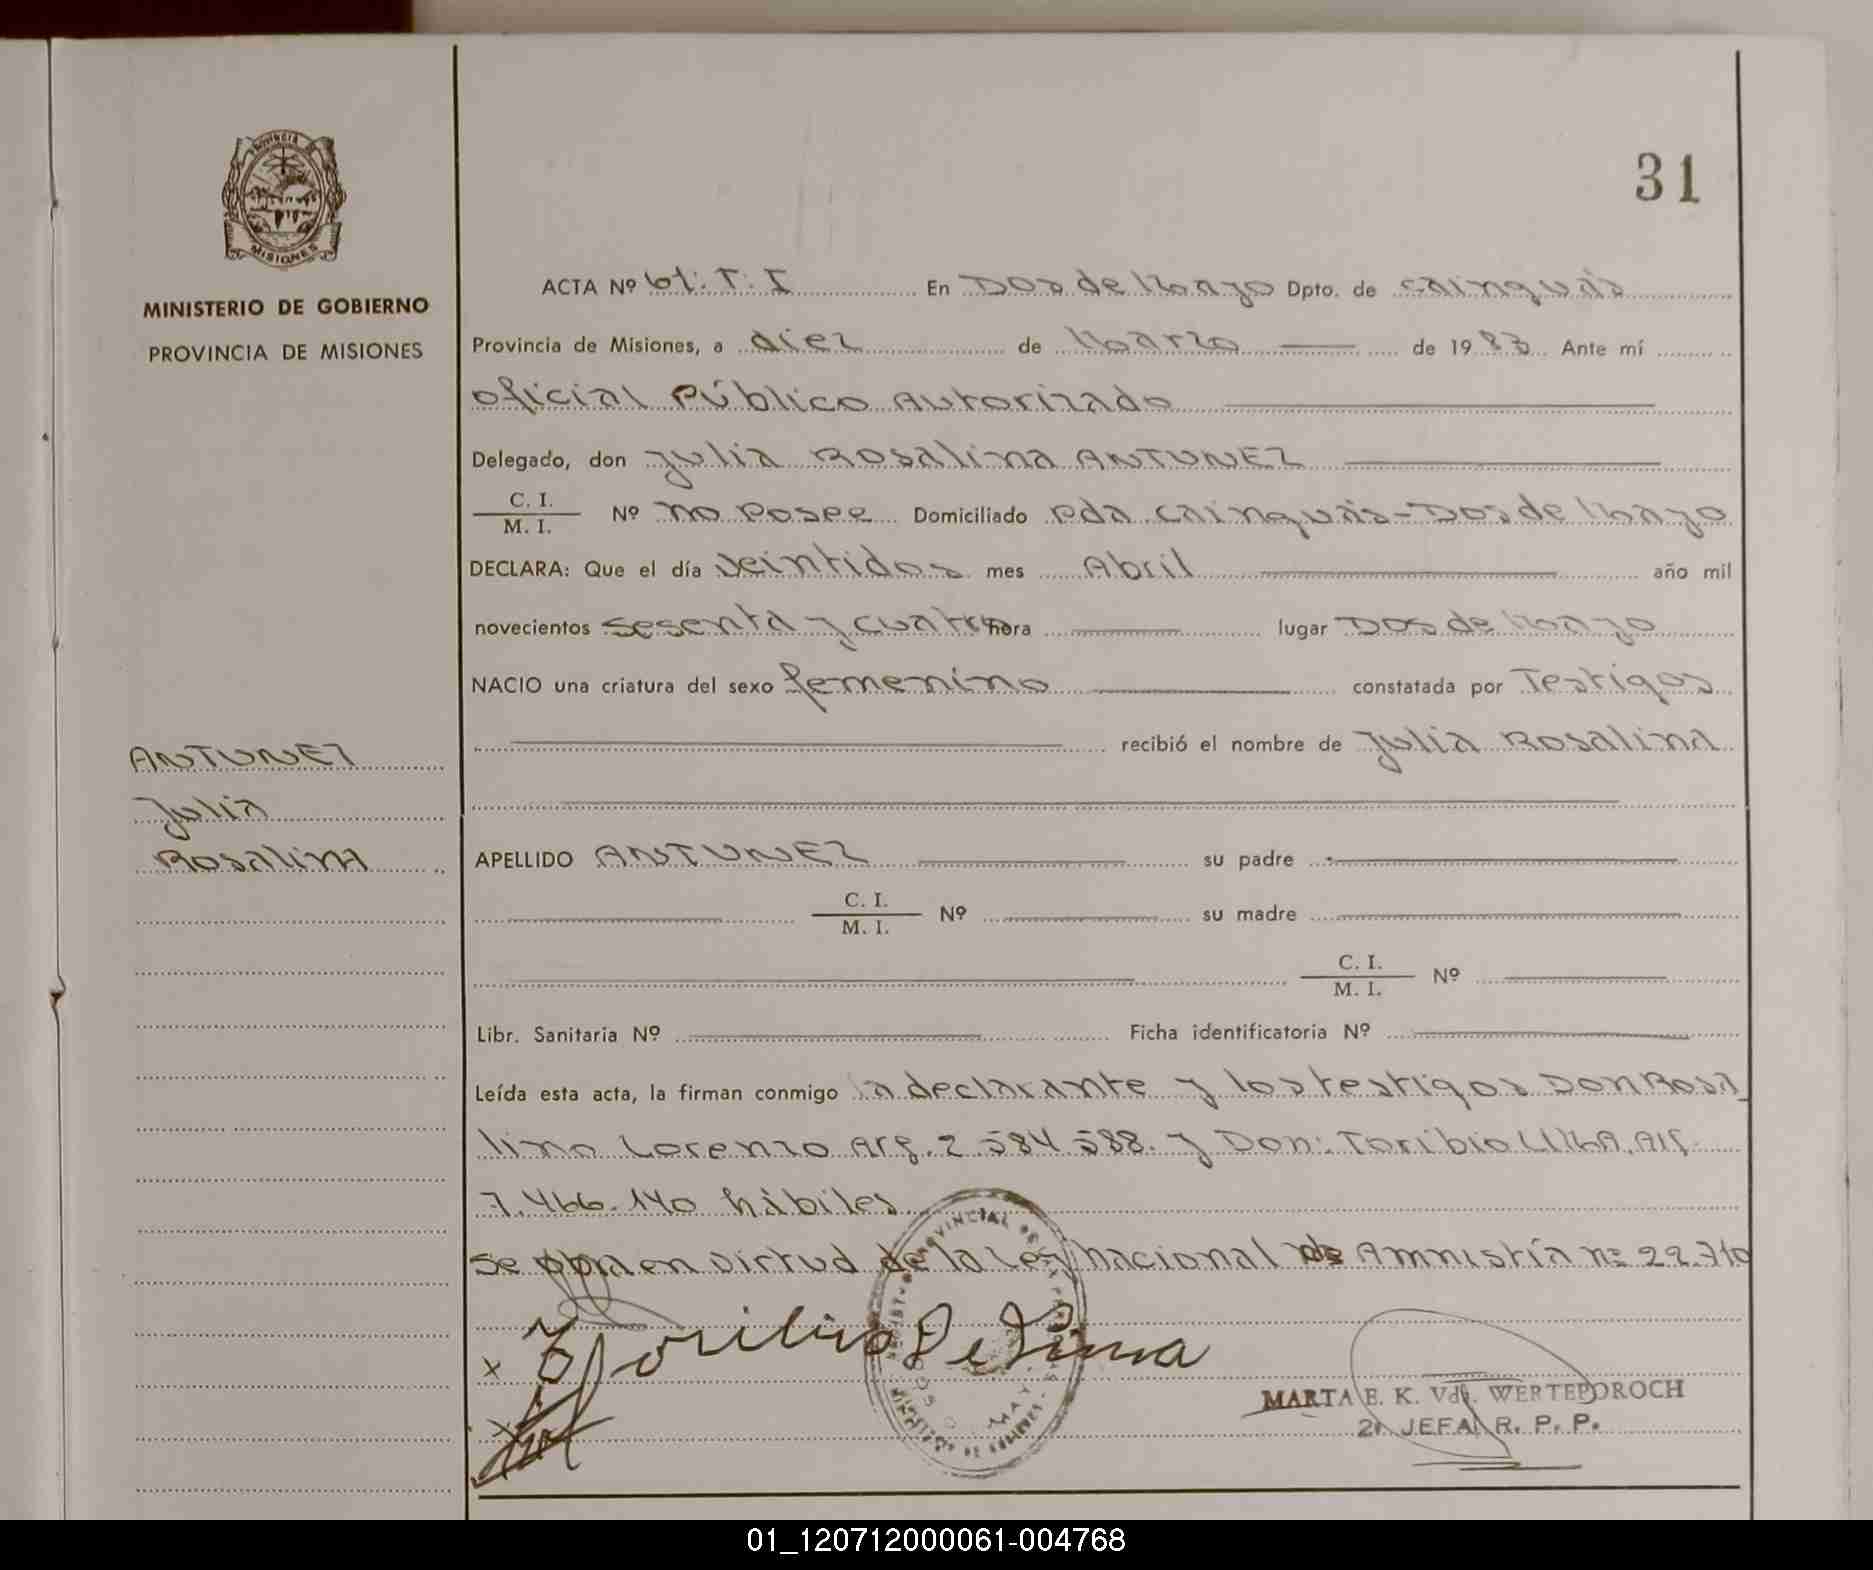 31
PROVINCIA DE
MISIONES
MINISTERIO DE GOBIERNO
PROVINCIA DE MISIONES
ACTA Nº 61: T: I En Dos de Mayo Dpto. de Cainguás
Provincia de Misiones, a diez de Marzo de 1983 Ante mí
oficial Público Autorizado
Delegado, don Julia Rosalina ANTUNEZ
C. I.
M. I. Nº no Posee Domiciliado Pda Cainguás-Dos de Mayo
DECLARA: Que el día veintidos mes Abril año mil
novecientos sesenta y cuatro hora lugar Dos de Mayo
NACIO una criatura del sexo femenino constatada por Testigos
recibió el nombre de Julia Rosalina
ANTUNEZ
Julia
Rosalina
APELLIDO ANTUNEZ su padre
C. I.
M. I. Nº su madre
C. I.
M. I. Nº
Libr. Sanitaria Nº Ficha identificatoria Nº
Leída esta acta, la firman conmigo la declarante y los testigos Don Rosa
lino Lorenzo Arg. 2.584.588. y Don: Toribio Arg.
7.466.140 hábiles
Se en virtud de la Ley nacional de Amnistía nº 22.710
MARTA E. K. Vda. WERTEPOROCH
2ª JEFA R. P. P.
01_120712000061-004768